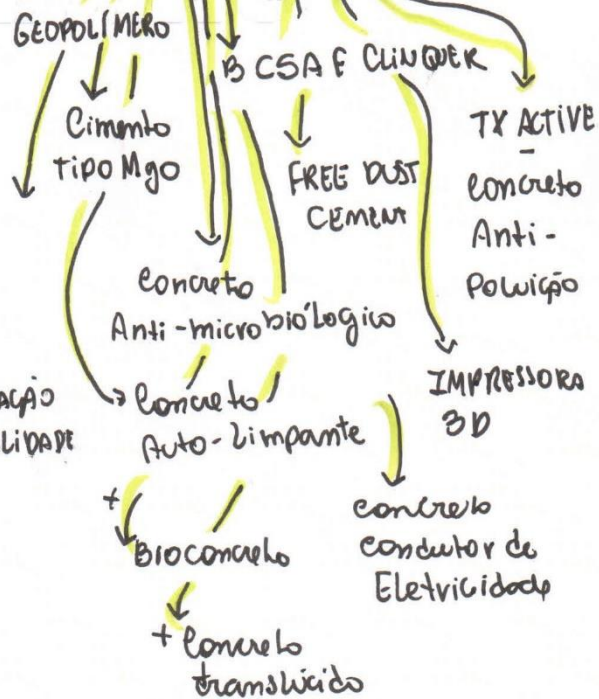 GEOPOLÍMERO
B CSA E CLINQUER
Cimento
TIPO Mgo
FREE DUST
CEMENT
TX ACTIVE
-
Concreto
Anti-
Poluição
Concreto
Anti-microbiólogico
AÇÃO
LIDADE
Concreto
Auto-Limpante
IMPRESSORA
3D
+
Bioconcreto
concreto
condutor de
Eletricidade
+ Concreto
translúcido